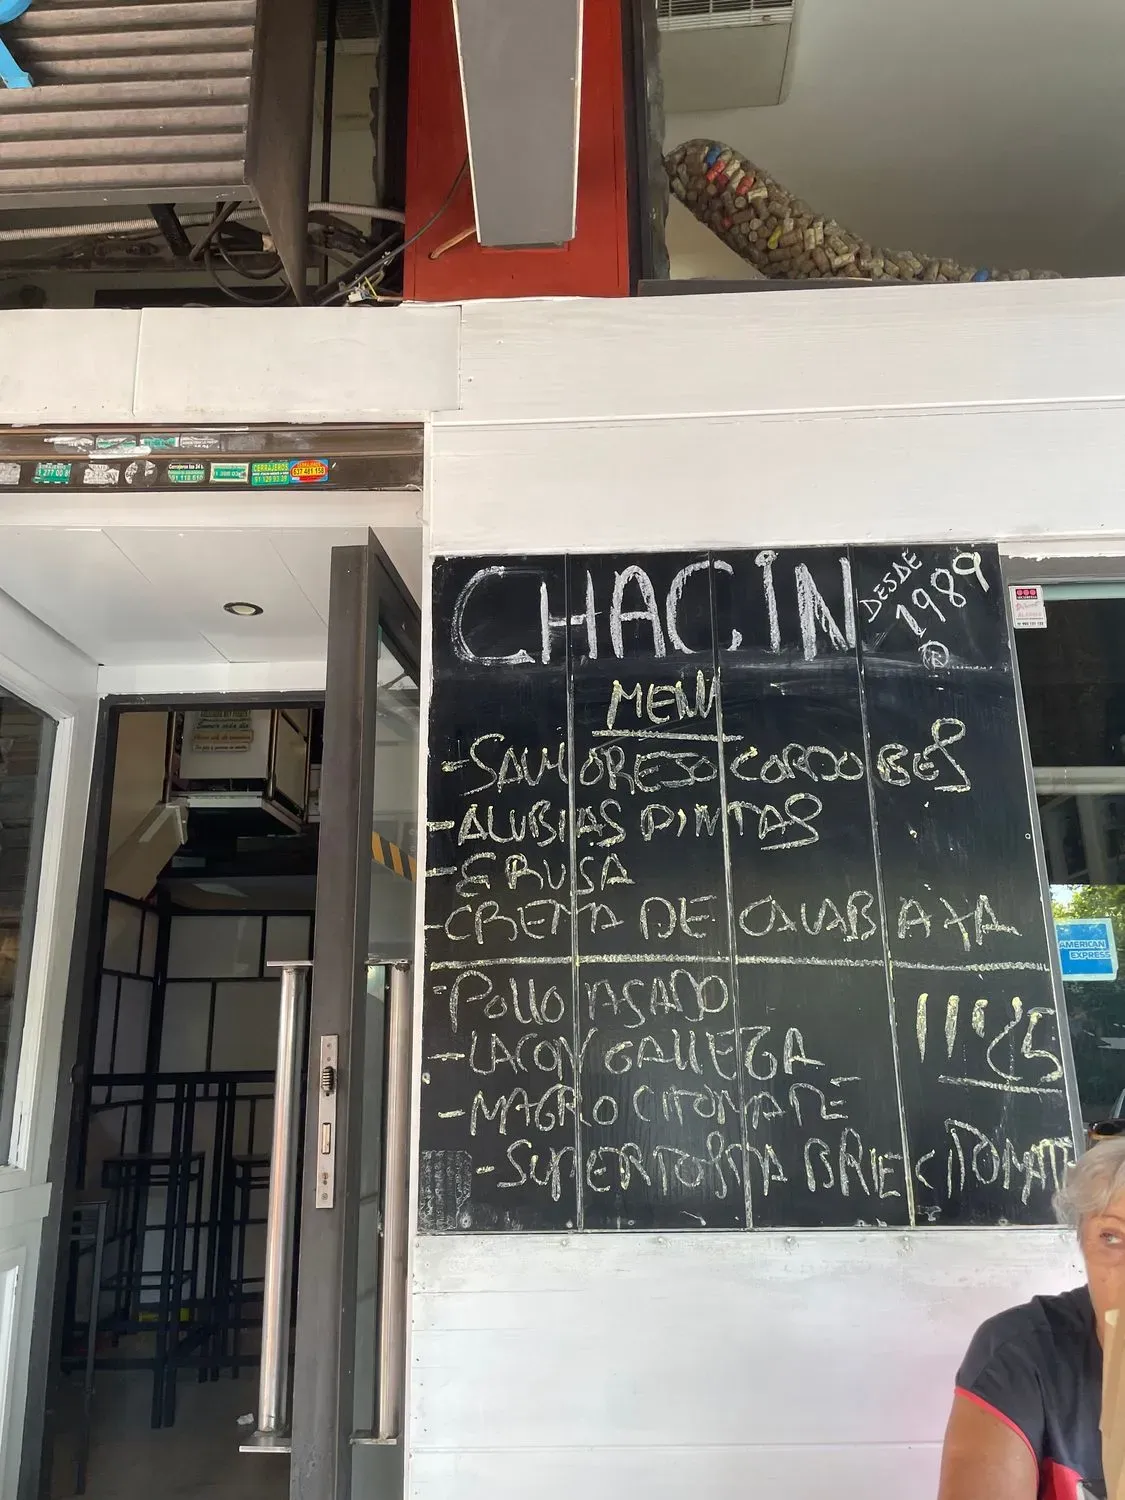 CHACIN
DESDE
1989
®
MENU
-SALMOREJO CORDOBES
-ALUBIAS PINTAS
-ERUSA
-CREMA DE CALABAXA
-POLLO ASADO
-LACON GALLEGA
11'25
-MAGRO C/TOMATE
-SUPERTOSTA BRIE C/TOMATE
CERRAJEROS
637 481 158
AMERICAN
EXPRESS